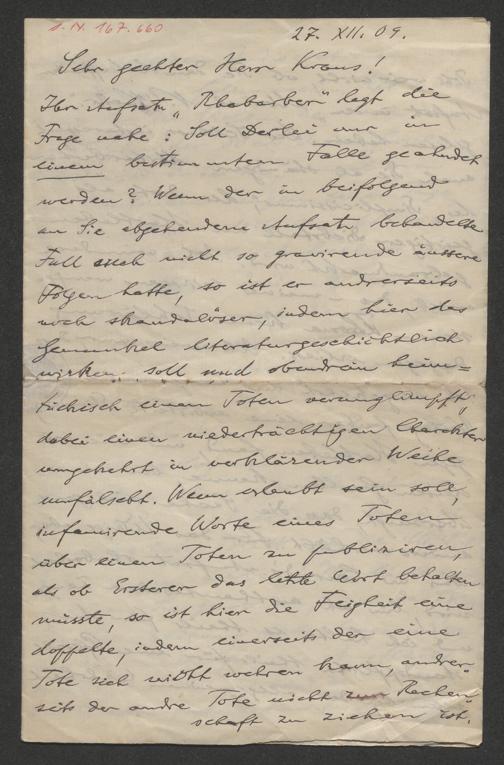 I. N. 167.660
27. XII. 09.
Sehr geehrter Herr Kraus!
Ihr Aufsatz „Rhabarber“ legt die
Frage nahe: Soll Derlei nur in
einem bestimmten Falle geahndet
werden? Wenn der in beifolgend
an Sie abgehendem Aufsatz behandelte
Fall auch nicht so gravirende äussere
Folgen hatte, so ist er andrerseits
noch skandalöser, indem hier das
Gemunkel literaturgeschichtlich
wirken soll und obendrein heim=
tückisch einen Toten verunglimpft,
dabei einen niederträchtigen Charakter
umgekehrt in verklärender Weihe
umfälscht. Wenn erlaubt sein soll,
infamirende Worte eines Toten
über einen Toten zu publiziren,
als ob Ersterer das letzte Wort behalten
müsste, so ist hier die Feigheit eine
doppelte, indem einerseits der eine
Tote sich nicht wehren kann, andrer-
seits der andre Tote nicht zur Rechen-
schaft zu ziehen ist.